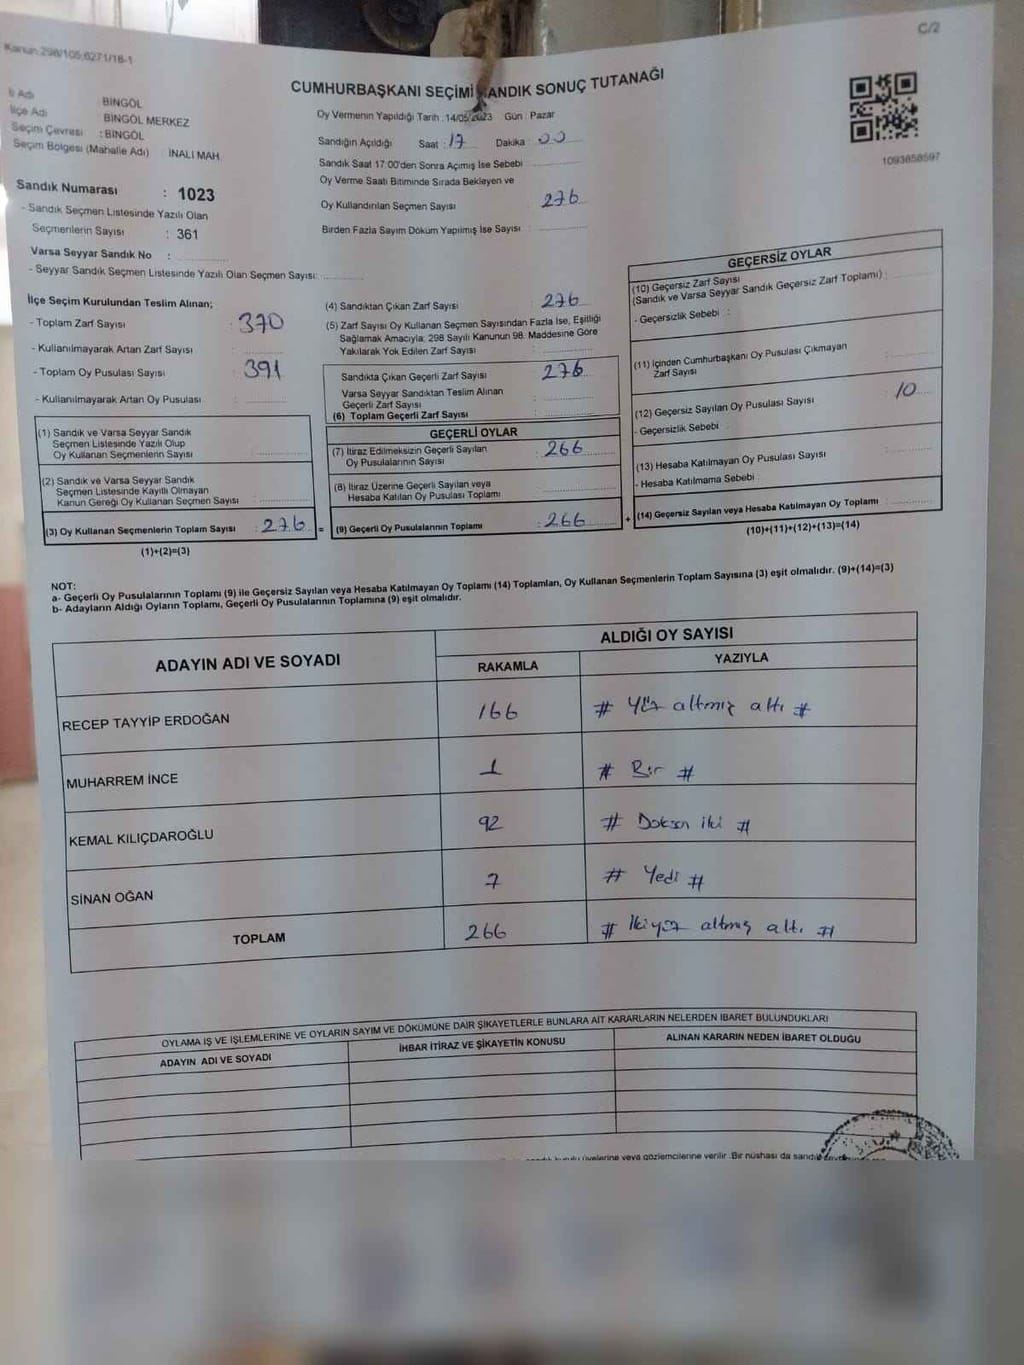 Kanun:298/105;6271/18-1
C/2
CUMHURBAŞKANI SEÇİMİ SANDIK SONUÇ TUTANAĞI
İl Adı BİNGÖL
İlçe Adı BİNGÖL MERKEZ
Seçim Çevresi : BİNGÖL
Seçim Bölgesi (Mahalle Adı) : İNALİ MAH.
Sandık Numarası : 1023
- Sandık Seçmen Listesinde Yazılı Olan
Seçmenlerin Sayısı : 361
Varsa Seyyar Sandık No :
- Seyyar Sandık Seçmen Listesinde Yazılı Olan Seçmen Sayısı:
Oy Vermenin Yapıldığı Tarih :14/05/2023 Gün : Pazar
Sandığın Açıldığı Saat : 17 Dakika : 00
Sandık Saat 17:00'den Sonra Açımış İse Sebebi
Oy Verme Saati Bitiminde Sırada Bekleyen ve
Oy Kullandırılan Seçmen Sayısı : 276
Birden Fazla Sayım Döküm Yapılmış İse Sayısı :
1093858597
İlçe Seçim Kurulundan Teslim Alınan;
- Toplam Zarf Sayısı : 370
- Kullanılmayarak Artan Zarf Sayısı :
- Toplam Oy Pusulası Sayısı : 391
- Kullanılmayarak Artan Oy Pusulası :
(1) Sandık ve Varsa Seyyar Sandık
Seçmen Listesinde Yazılı Olup
Oy Kullanan Seçmenlerin Sayısı
(2) Sandık ve Varsa Seyyar Sandık
Seçmen Listesinde Kayıtlı Olmayan
Kanun Gereği Oy Kullanan Seçmen Sayısı
(3) Oy Kullanan Seçmenlerin Toplam Sayısı : 276 =
(1)+(2)=(3)
(4) Sandıktan Çıkan Zarf Sayısı : 276
(5) Zarf Sayısı Oy Kullanan Seçmen Sayısından Fazla İse, Eşitliği
Sağlamak Amacıyla; 298 Sayılı Kanunun 98. Maddesine Göre
Yakılarak Yok Edilen Zarf Sayısı :
Sandıkta Çıkan Geçerli Zarf Sayısı : 276
Varsa Seyyar Sandıktan Teslim Alınan
Geçerli Zarf Sayısı :
(6) Toplam Geçerli Zarf Sayısı :
GEÇERLİ OYLAR
(7) İtiraz Edilmeksizin Geçerli Sayılan
Oy Pusulalarının Sayısı : 266
(8) İtiraz Üzerine Geçerli Sayılan veya
Hesaba Katılan Oy Pusulası Toplamı
(9) Geçerli Oy Pusulalarının Toplamı : 266 +
GEÇERSİZ OYLAR
(10) Geçersiz Zarf Sayısı
(Sandık ve Varsa Seyyar Sandık Geçersiz Zarf Toplamı) :
- Geçersizlik Sebebi :
(11) İçinden Cumhurbaşkanı Oy Pusulası Çıkmayan
Zarf Sayısı :
(12) Geçersiz Sayılan Oy Pusulası Sayısı : 10
- Geçersizlik Sebebi :
(13) Hesaba Katılmayan Oy Pusulası Sayısı :
- Hesaba Katılmama Sebebi :
(14) Geçersiz Sayılan veya Hesaba Katılmayan Oy Toplamı :
(10)+(11)+(12)+(13)=(14)
NOT:
a- Geçerli Oy Pusulalarının Toplamı (9) ile Geçersiz Sayılan veya Hesaba Katılmayan Oy Toplamı (14) Toplamları, Oy Kullanan Seçmenlerin Toplam Sayısına (3) eşit olmalıdır. (9)+(14)=(3)
b- Adayların Aldığı Oyların Toplamı, Geçerli Oy Pusulalarının Toplamına (9) eşit olmalıdır.
ADAYIN ADI VE SOYADI
ALDIĞI OY SAYISI
RAKAMLA YAZIYLA
RECEP TAYYİP ERDOĞAN 166 # Yüz altmış altı #
MUHARREM İNCE 1 # Bir #
KEMAL KILIÇDAROĞLU 92 # Doksan iki #
SİNAN OĞAN 7 # Yedi #
TOPLAM 266 # İkiyüz altmış altı #
OYLAMA İŞ VE İŞLEMLERİNE VE OYLARIN SAYIM VE DÖKÜMÜNE DAİR ŞİKAYETLERLE BUNLARA AİT KARARLARIN NELERDEN İBARET BULUNDUKLARI
ADAYIN ADI VE SOYADI İHBAR İTİRAZ VE ŞİKAYETİN KONUSU ALINAN KARARIN NEDEN İBARET OLDUĞU
kurulu üyelerine veya gözlemcilerine verilir. Bir nüshası da sandık